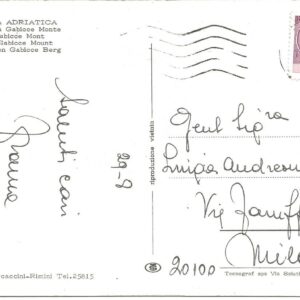 A ADRIATICA
Gabicce Monte
Gabicce Mont
Gabicce Mount
en Gabicce Berg
Saluti cari
29-8
riproduzione vietata
Gent Sig.ra
Luigia
Via
Mila
20100
caccini-Rimini Tel.25815
Tecnograf spa Via